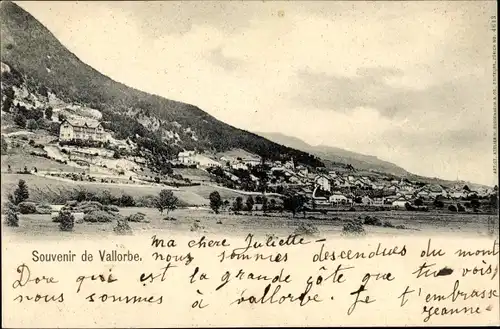 Souvenir de Vallorbe.
Ma chere Juliette
nous sommes descendus du mont
Dore qui est la grande côte que tu vois,
nous sommes à vallorbe. Je t'embrasse
Jeanne